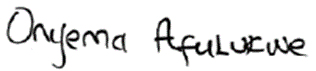 Onyema Afulukwe